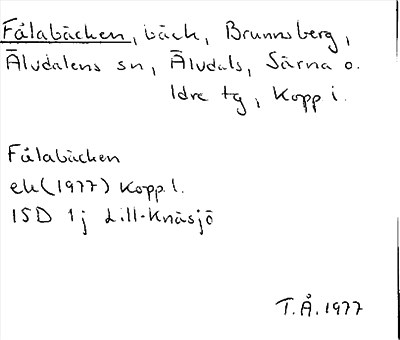 Fålabäcken, bäck, Brunnsberg,
Älvdalens sn, Älvdals, Särna o.
Idre tg, Kopp l.
Fålabäcken
ek (1977) Kopp l.
15D 1j Lill-Knäsjö
T.Å. 1977